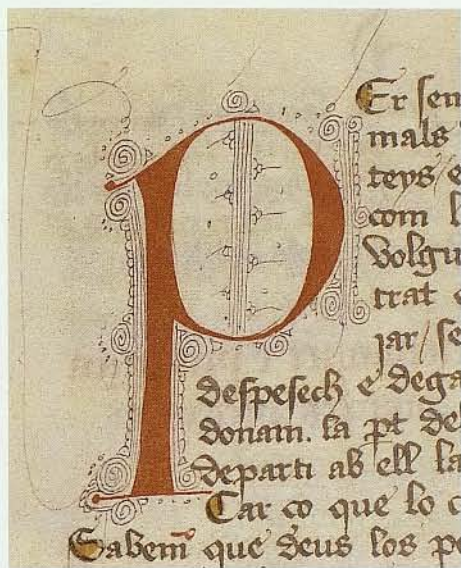 PEr sen
mals
teys e
com l
Volgu
trat e
jar / se
despesech e dega
donam. la pt de
departi ab ell la
Car co que lo c
Sabem que deus los pe